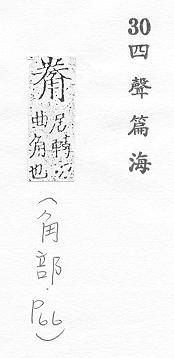 30
四聲篇海
觠
居轉
曲角也
(角部.P66)